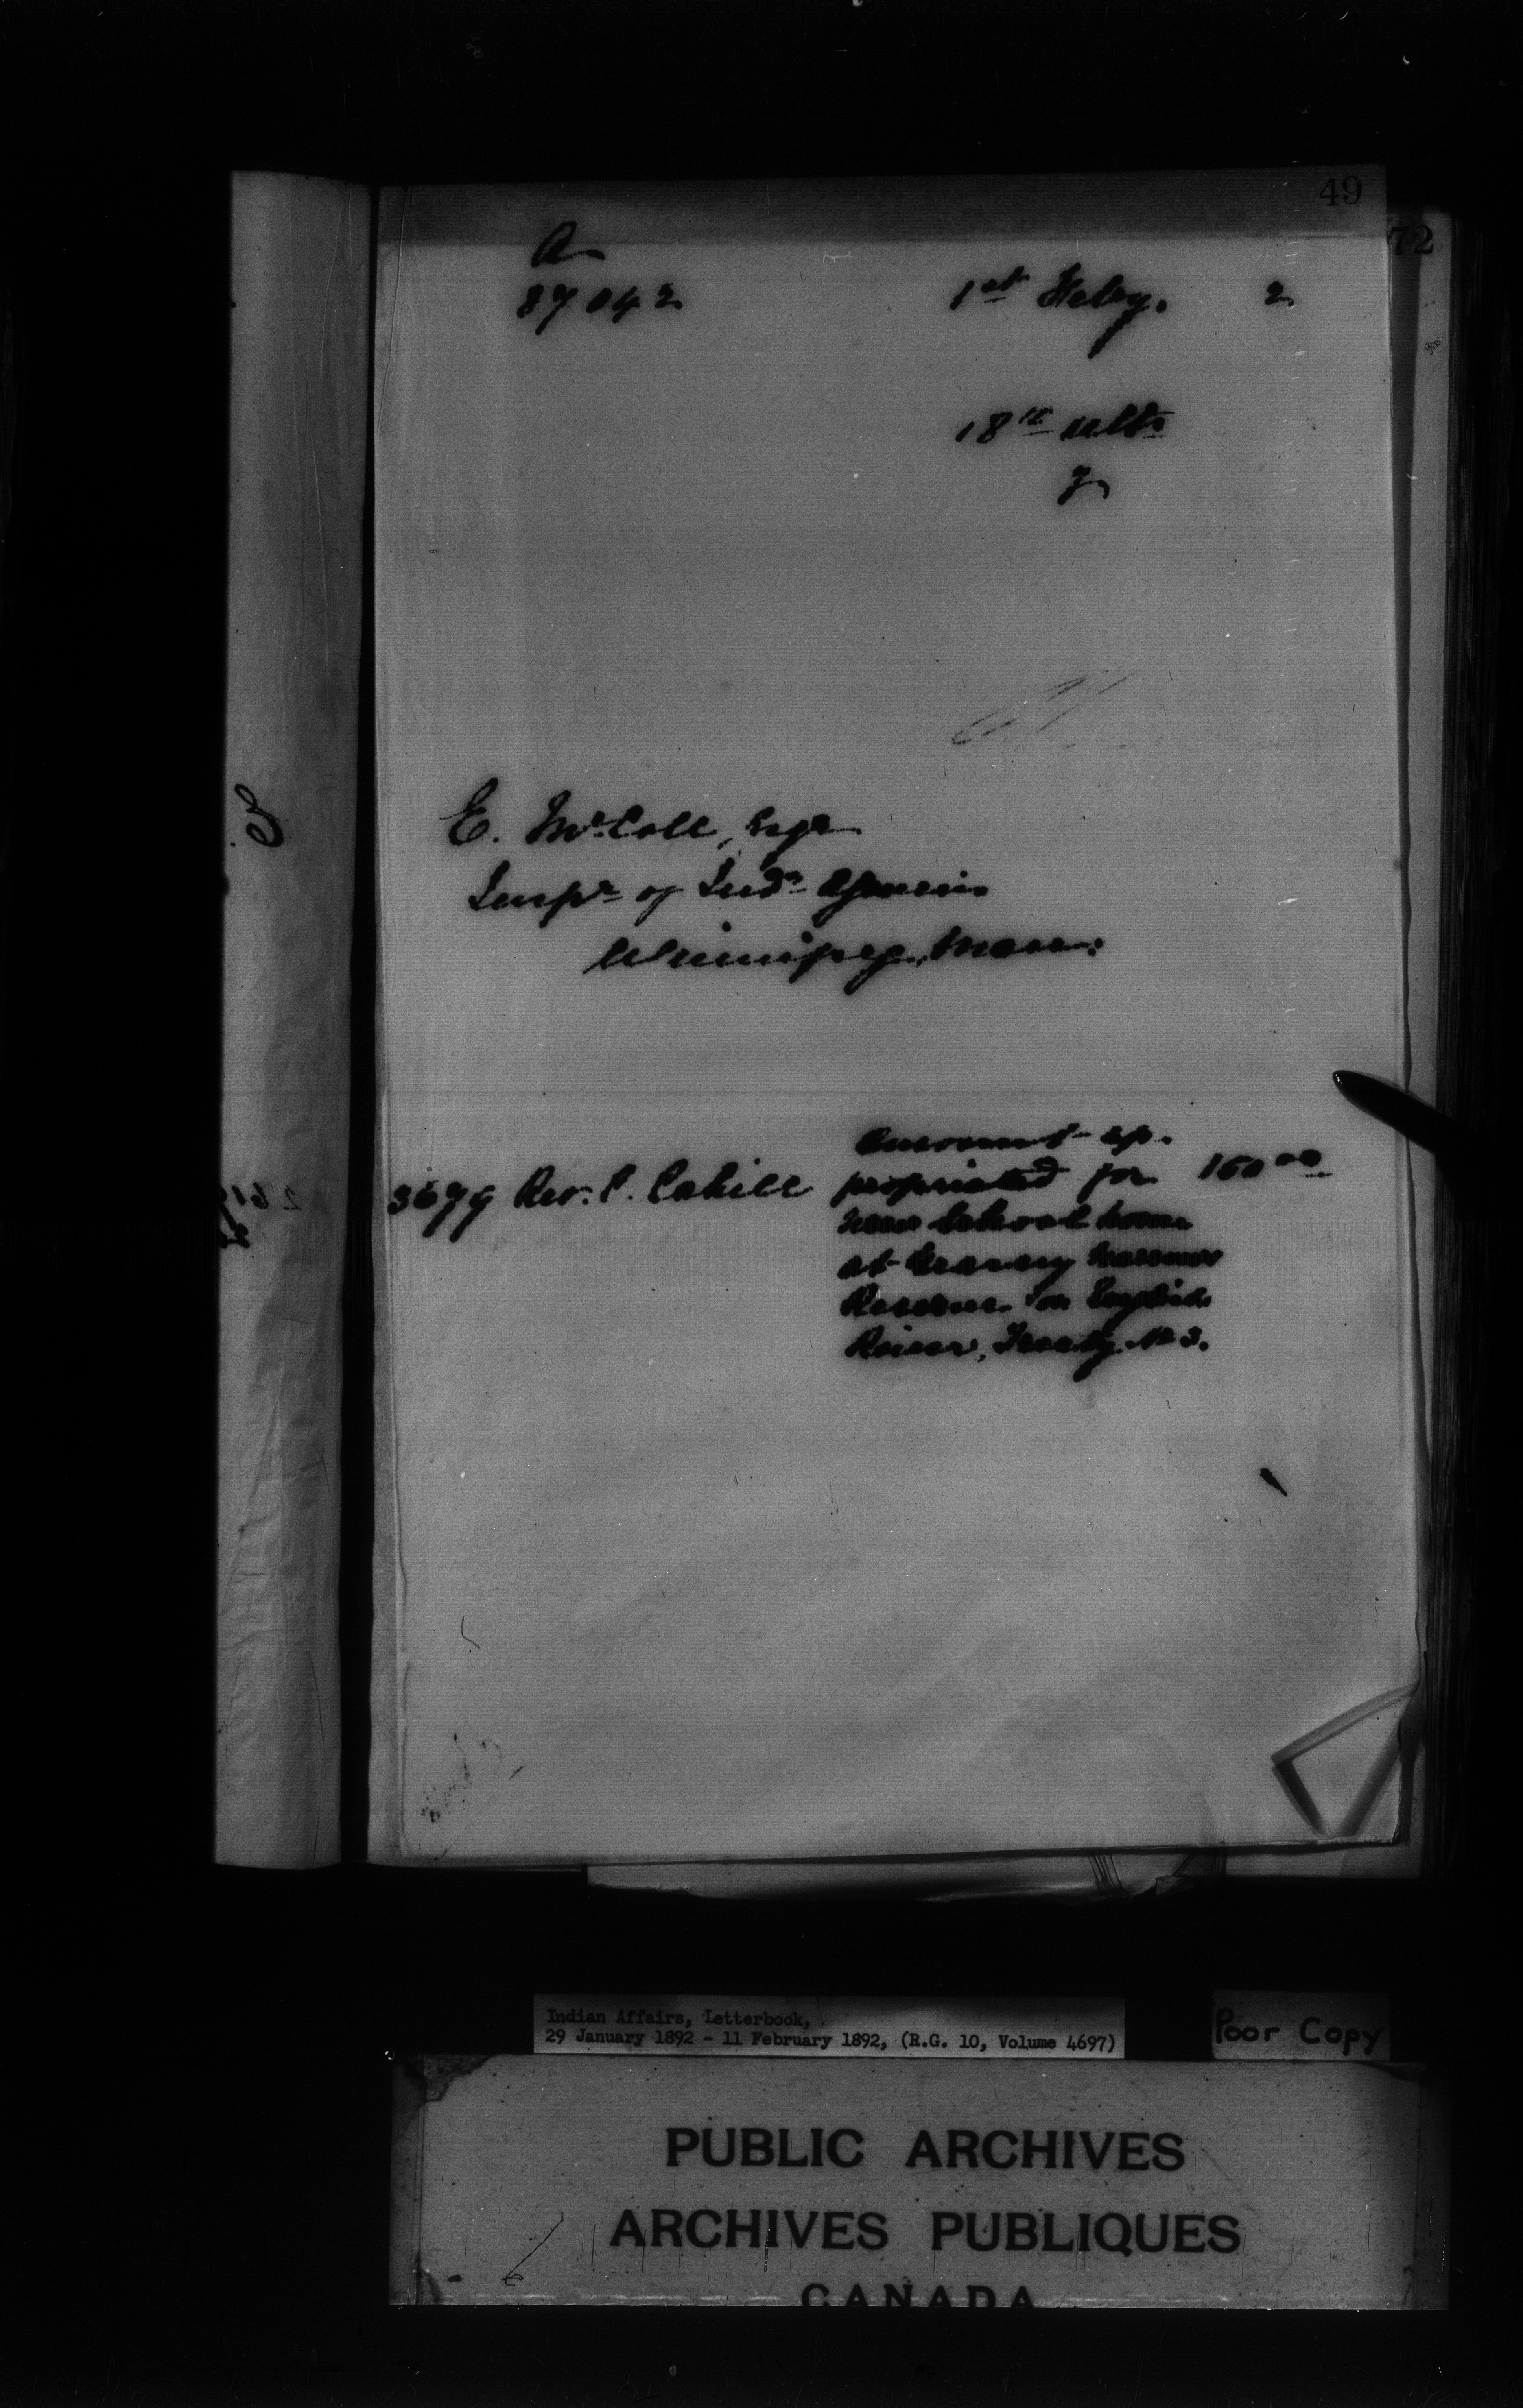 49
72
A
87042
1st Feby. 2
18th ulto
E. McColl, Esqr
Inspr of Indn Agencies
Winnipeg, Man:
Amount ap-
3679 Rev. C. Cahill propriated for 150 00
new School house
at Grassy Narrows
Reserve on English
River, Treaty No 3.
Indian Affairs, Letterbook,
29 January 1892 - 11 February 1892, (R.G. 10, Volume 4697)
Poor Copy
PUBLIC ARCHIVES
ARCHIVES PUBLIQUES
CANADA